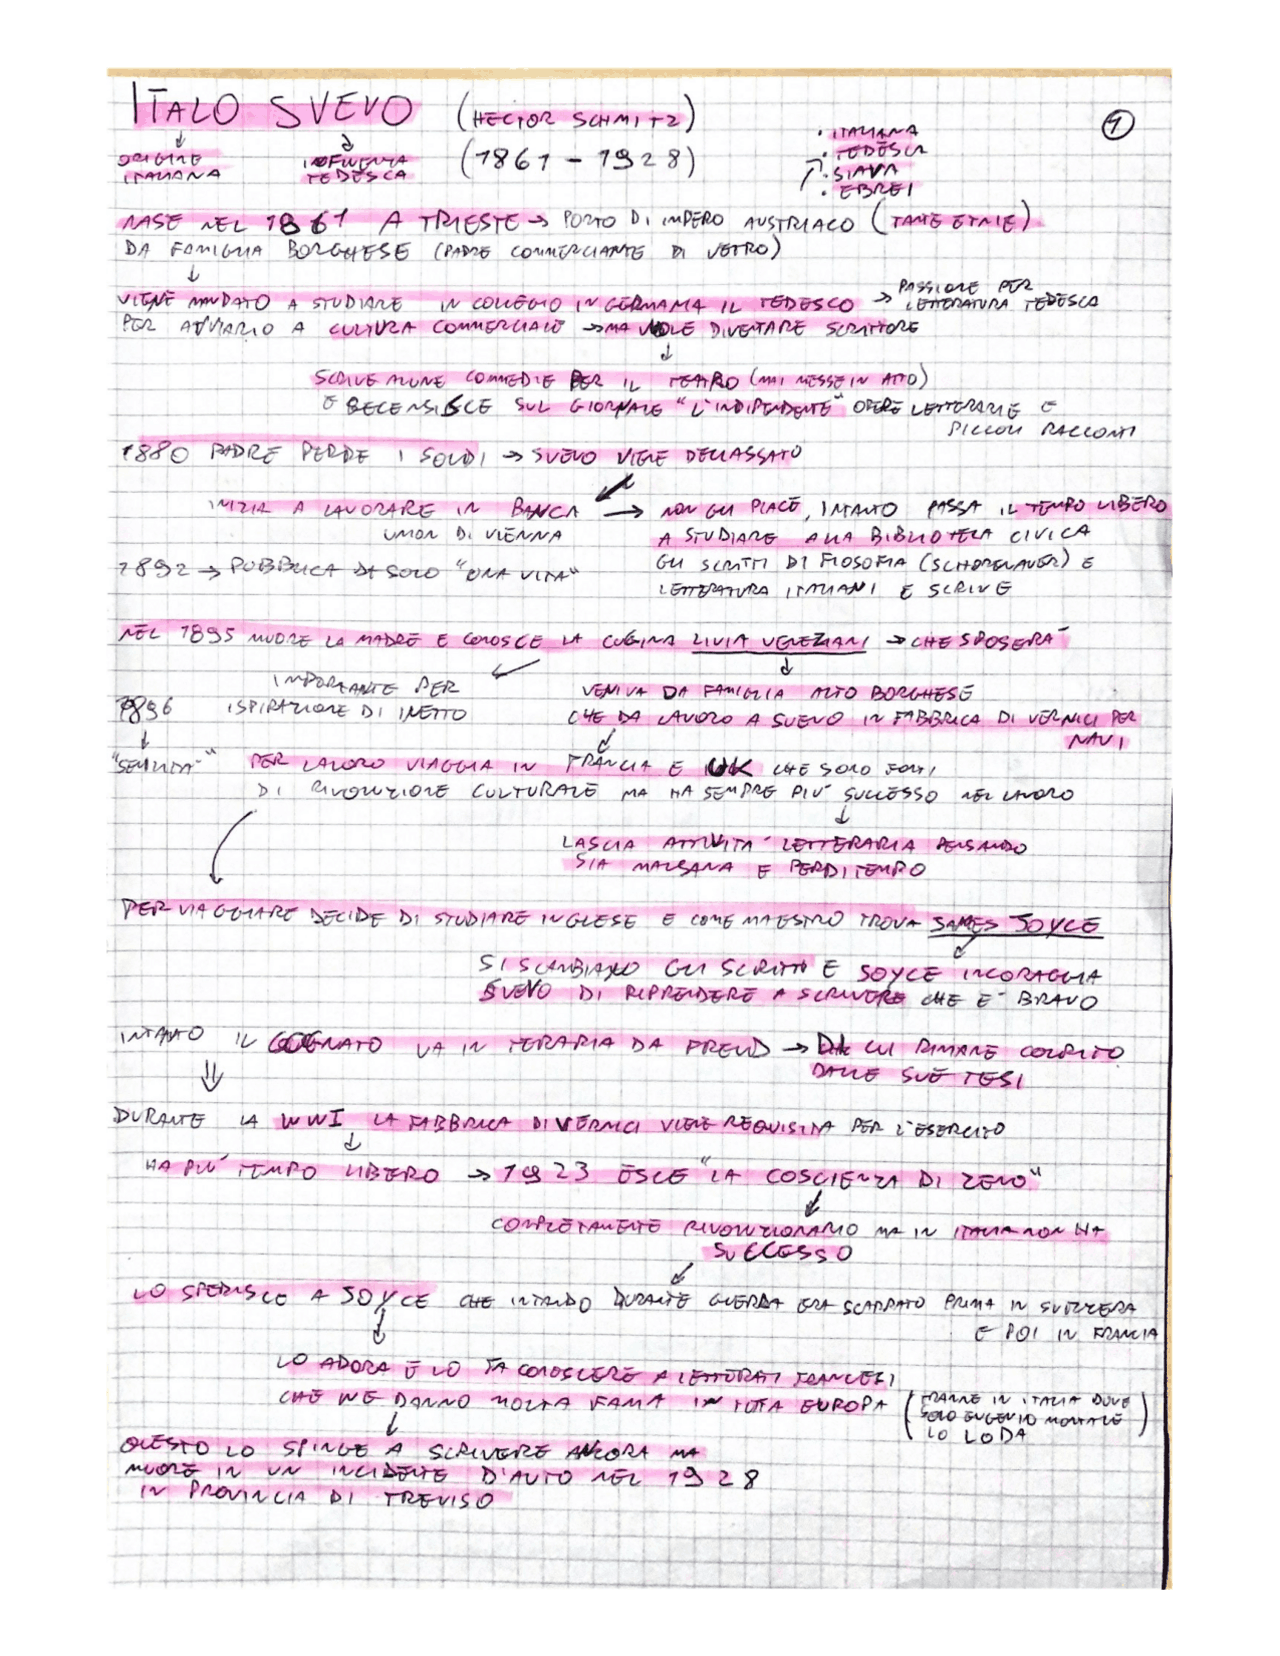 ITALO SVEVO (HECTOR SCHMITZ) 1
ORIGINE ITALIANA
INFLUENZA TEDESCA
(1861 - 1928)
• ITALIANA
• TEDESCA
• SLAVA
• EBREI
NASE NEL 1861 A TRIESTE → PORTO DI IMPERO AUSTRIACO (TANTE ETNIE)
DA FAMIGLIA BORGHESE (PADRE COMMERCIANTE DI VETRO)
↓
VIENE MANDATO A STUDIARE IN COLLEGIO IN GERMANIA IL TEDESCO → PASSIONE PER
LETTERATURA TEDESCA
PER AVVIARLO A CULTURA COMMERCIALE → MA VUOLE DIVENTARE SCRITTORE
↓
SCRIVE ALCUNE COMMEDIE PER IL TEATRO (MAI MESSE IN ATTO)
E RECENSISCE SUL GIORNALE "L'INDIPENDENTE" OPERE LETTERARIE E
PICCOLI RACCONTI
1880 PADRE PERDE I SOLDI → SVEVO VIENE DECLASSATO
INIZIA A LAVORARE IN BANCA
UNION DI VIENNA
→ NON GLI PIACE, INTANTO PASSA IL TEMPO LIBERO
A STUDIARE ALLA BIBLIOTECA CIVICA
GLI SCRITTI DI FILOSOFIA (SCHOPENAUER) E
LETTERATURA ITALIANI E SCRIVE
1892 → PUBBLICA DA SOLO "UNA VITA"
NEL 1895 MUORE LA MADRE E CONOSCE LA CUGINA LIVIA VENEZIANI → CHE SPOSERA'
IMPORTANTE PER
ISPIRAZIONE DI INETTO
VENIVA DA FAMIGLIA ALTO BORGHESE
CHE DA LAVORO A SVEVO IN FABBRICA DI VERNICI PER
NAVI
1896
↓
"SENILITA'"
PER LAVORO VIAGGIA IN FRANCIA E UK CHE SONO FONTI
DI RIVOLUZIONE CULTURALE MA HA SEMPRE PIU' SUCCESSO NEL LAVORO
↓
LASCIA ATTIVITA' LETTERARIA PENSANDO
SIA MALSANA E PERDITEMPO
PER VIAGGIARE DECIDE DI STUDIARE INGLESE E COME MAESTRO TROVA JAMES JOYCE
SI SCAMBIANO GLI SCRITTI E JOYCE INCORAGGIA
SVEVO DI RIPRENDERE A SCRIVERE CHE E' BRAVO
INTANTO IL COGNATO VA IN TERAPIA DA FREUD → LUI RIMANE COLPITO
DALLE SUE TESI
DURANTE LA WWI LA FABBRICA DI VERNICI VIENE REQUISITA PER L'ESERCITO
↓
HA PIU' TEMPO LIBERO → 1923 ESCE "LA COSCIENZA DI ZENO"
COMPLETAMENTE RIVOLUZIONARIO MA IN ITALIA NON HA
SUCCESSO
LO SPEDISCE A JOYCE CHE INTANTO DURANTE GUERRA ERA SCAPPATO PRIMA IN SVIZZERA
E POI IN FRANCIA
↓
LO ADORA E LO FA CONOSCERE A LETTERATI FRANCESI
CHE NE DANNO MOLTA FAMA IN TUTTA EUROPA
(TRANNE IN ITALIA DOVE
SOLO EUGENIO MONTALE
LO LODA)
↓
QUESTO LO SPINGE A SCRIVERE ANCORA MA
MUORE IN UN INCIDENTE D'AUTO NEL 1928
IN PROVINCIA DI TREVISO